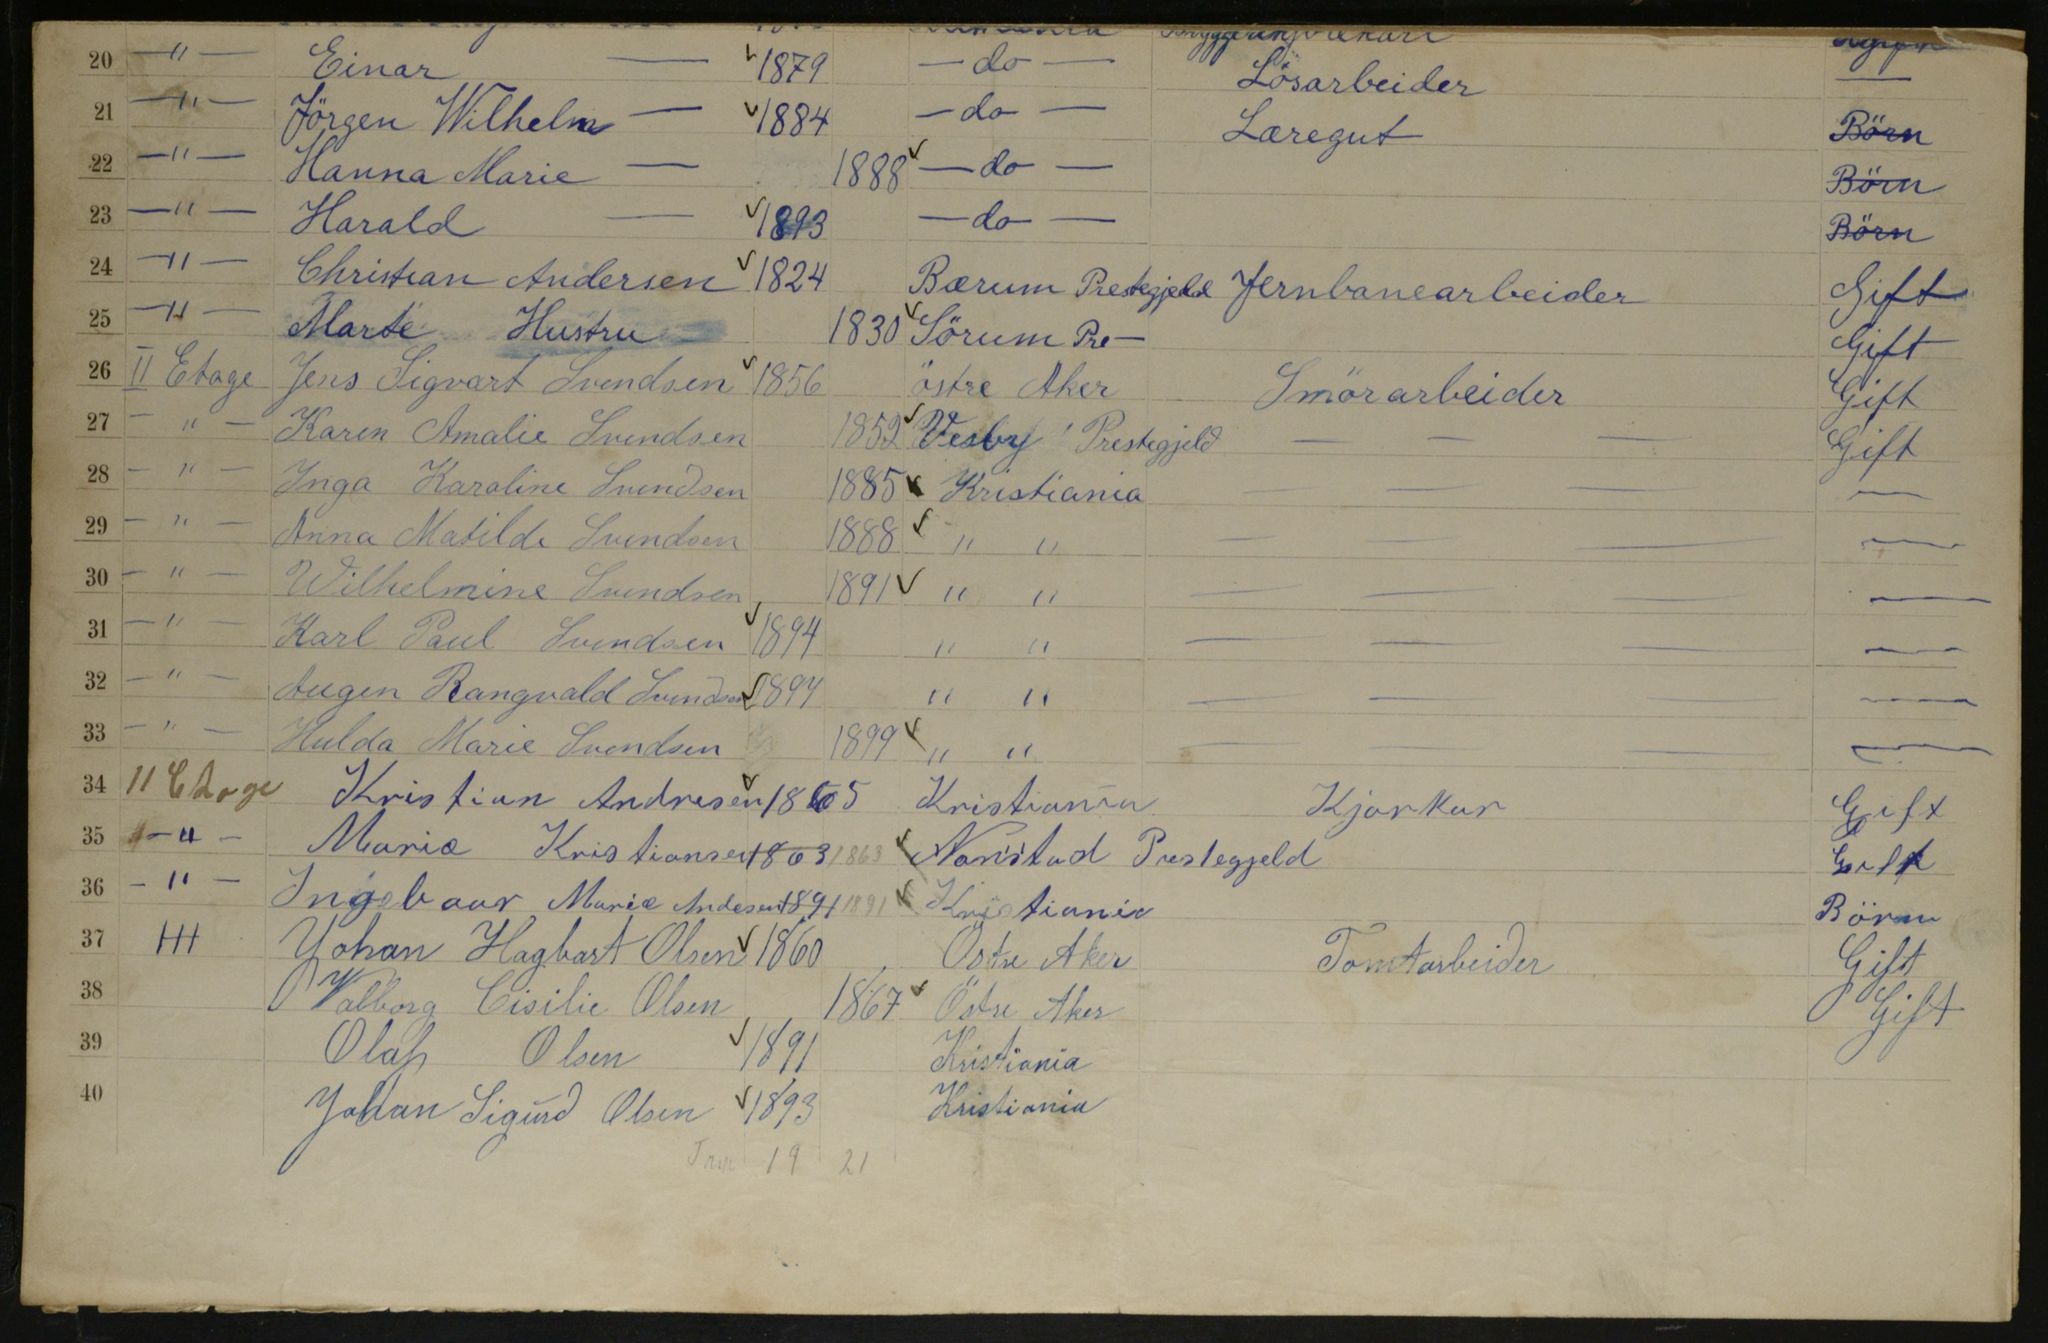 20 — " — Einar — 1879 — do — Lösarbeider —
21 — " — Jörgen Wilhelm — 1884 — do — Læregut Börn
22 — " — Hanna Marie — 1888 — do — Börn
23 — " — Harald — 1893 — do — Börn
24 — " — Christian Andersen 1824 Bærum Prestegjeld Jernbanearbeider Gift
25 — " — Marte Hustru 1830 Sörum Pre — Gift
26 II Etage Jens Sigvart Svendsen 1856 östre Aker Smörarbeider Gift
27 — " — Karen Amalie Svendsen 1852 Vesby Prestegjeld — — — Gift
28 — " — Inga Karoline Svendsen 1885 Kristiania — — — —
29 — " — Anna Matilde Svendsen 1888 " " — — — —
30 — " — Wilhelmine Svendsen 1891 " " — — — —
31 — " — Karl Paul Svendsen 1894 " " — — — —
32 — " — Augen Rangvald Svendsen 1894 " " — — — —
33 — " — Hulda Marie Svendsen 1899 " " — — — —
34 II Etage Kristian Andresen 1865 Kristiania Kjørkar Gift
35 — " — Marie Kristiansen 1863 1863 Nanstad Prestegjeld Gift
36 — " — Ingebaar Marie Andesen 1891 1891 Kristiania Börn
37 III Johan Hagbart Olsen 1860 Östre Aker Tomtarbeider Gift
38 Valborg Cisilie Olsen 1867 Östre Aker Gift
39 Olaf Olsen 1891 Kristiania
40 Johan Sigurd Olsen 1893 Kristiania
19 21